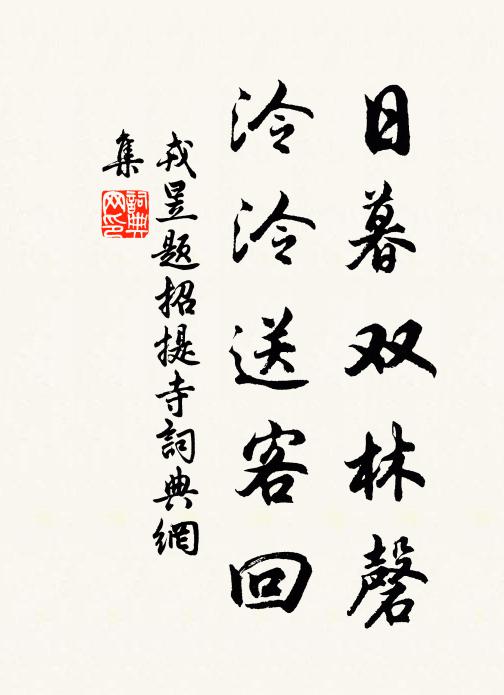 日暮双林磬
泠泠送客回
戎昱题招提寺詞典網
集
詞典
网印